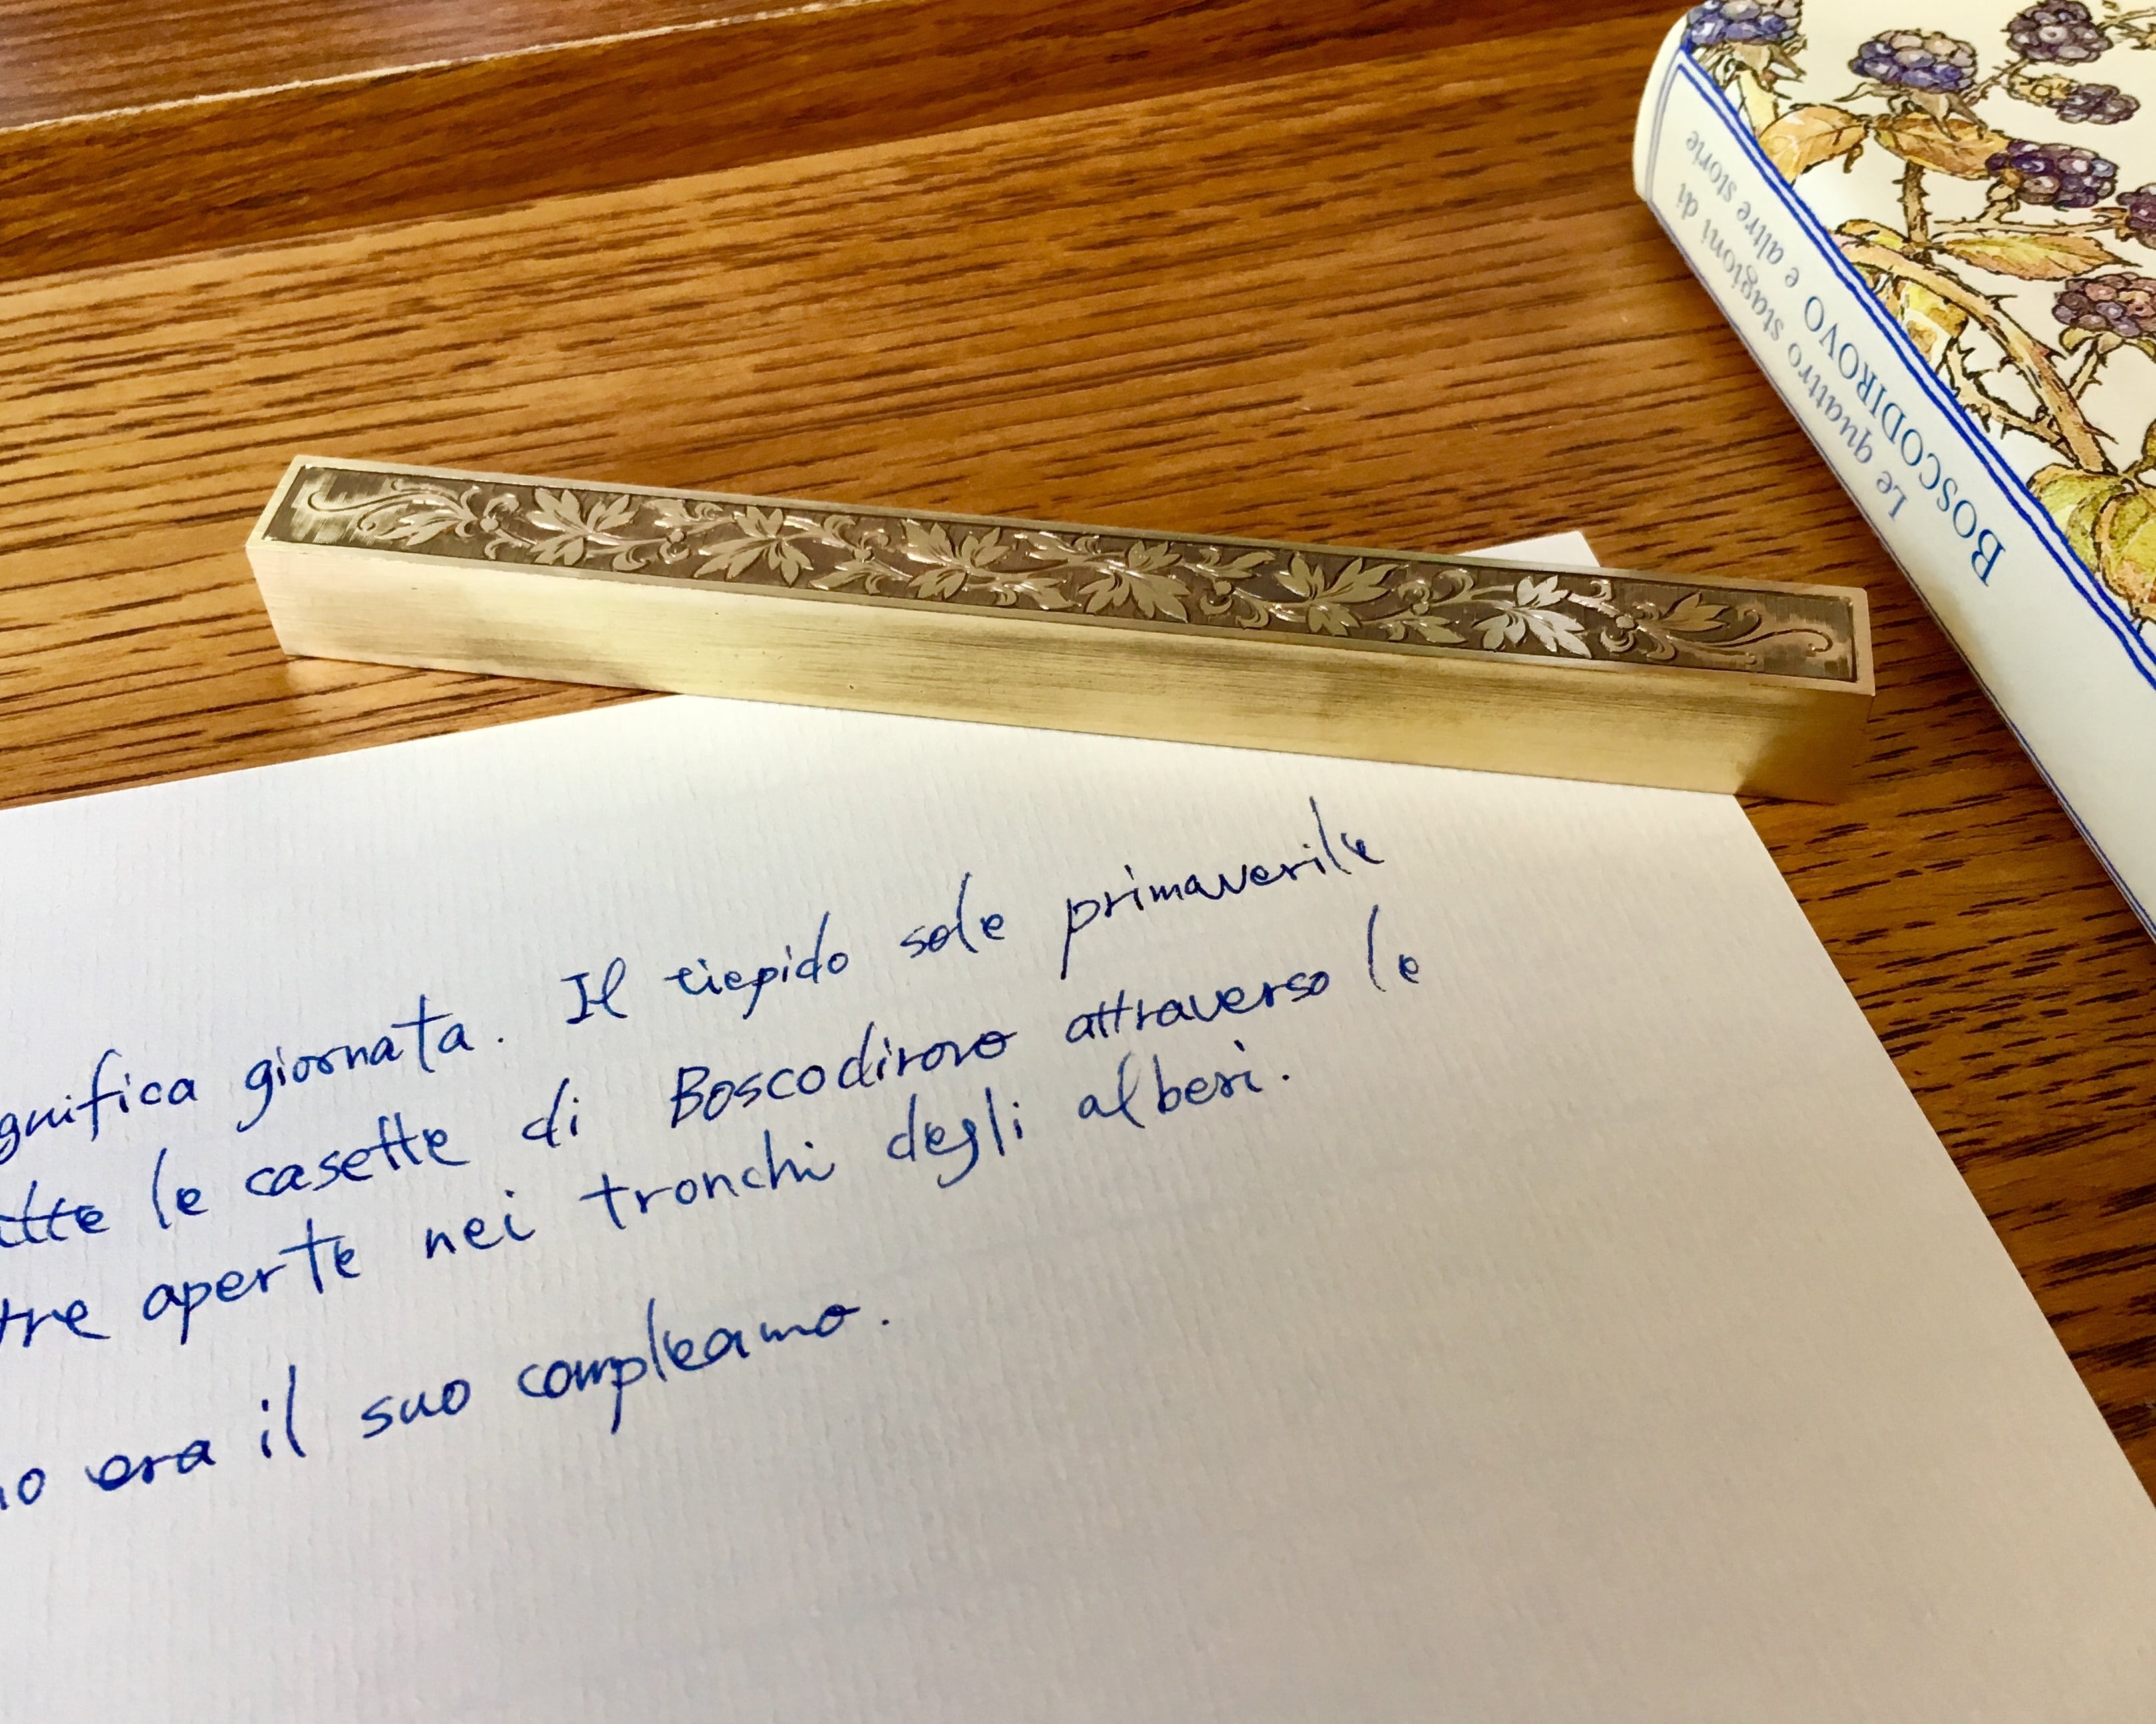 Le quattro stagioni di
BOSCODIROVO e altre storie
gnifica giornata. Il tiepido sole primaverile
tte le casette di Boscodirovo attraverso le
tre aperte nei tronchi degli alberi.
no era il suo compleanno.